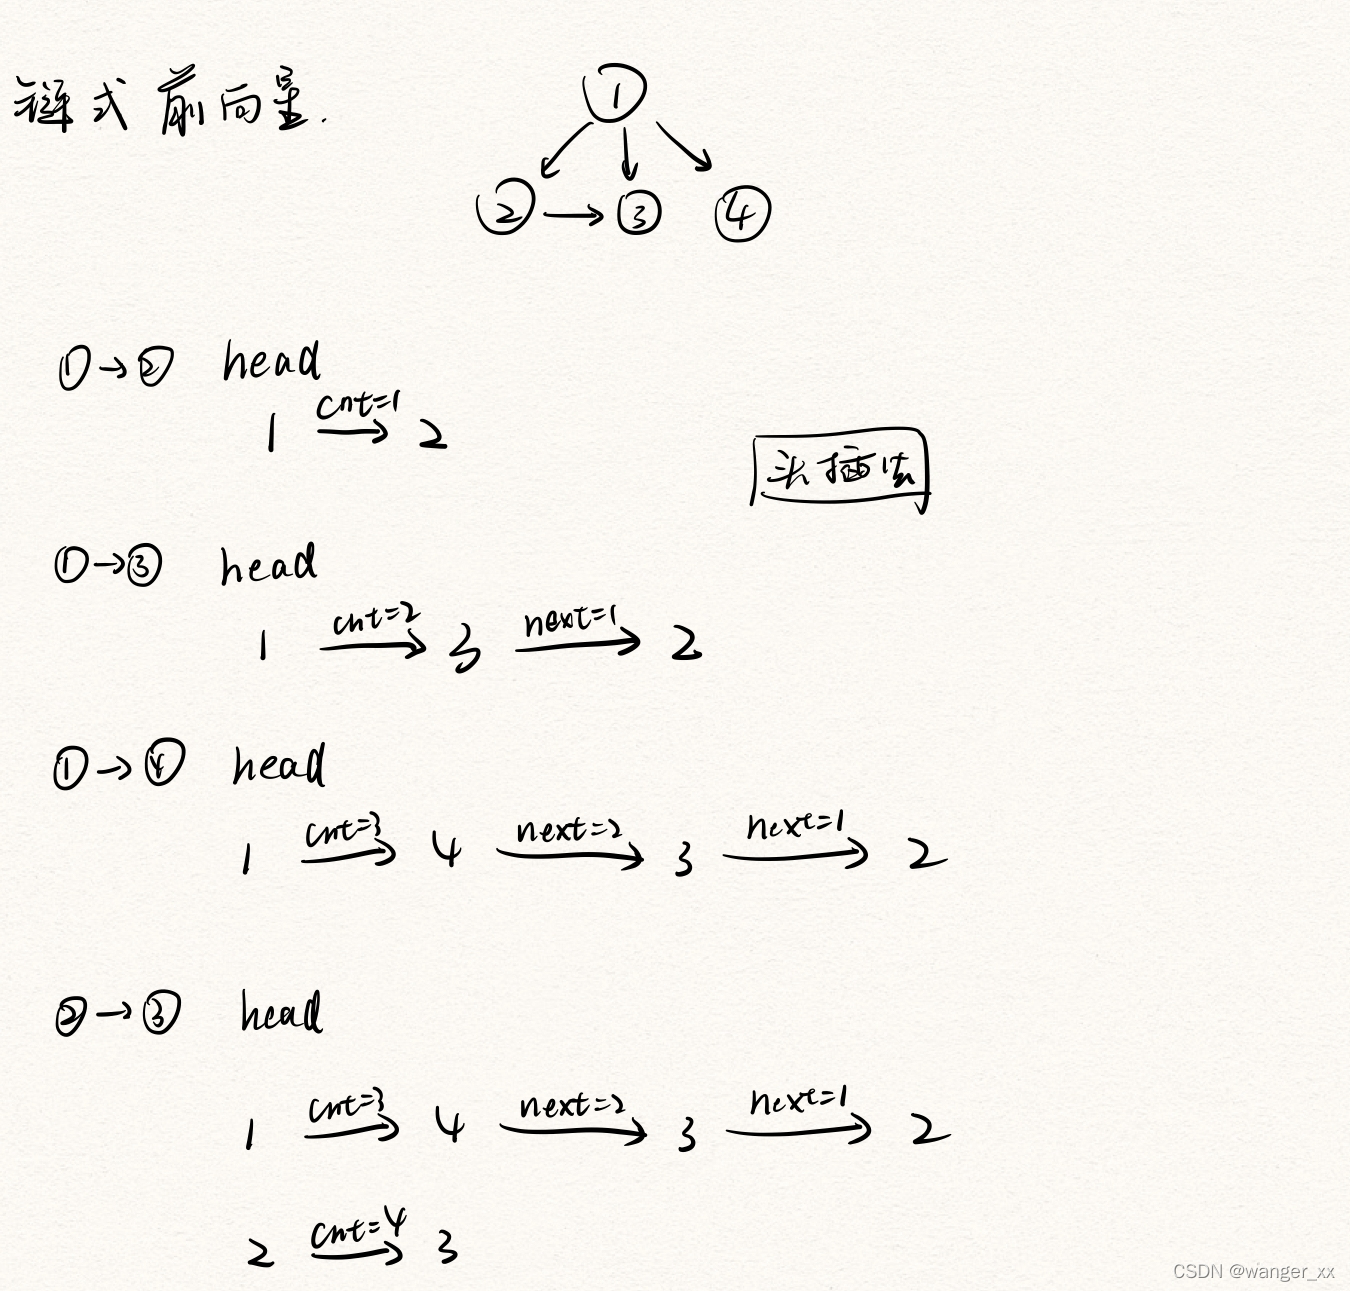 链式前向星.
1
2 → 3 4
① → ② head
cnt=1
1 → 2
头插法
① → ③ head
cnt=2 next=1
1 → 3 → 2
① → ④ head
cnt=3 next=2 next=1
1 → 4 → 3 → 2
② → ③ head
cnt=3 next=2 next=1
1 → 4 → 3 → 2
cnt=4
2 → 3
CSDN @wanger_xx